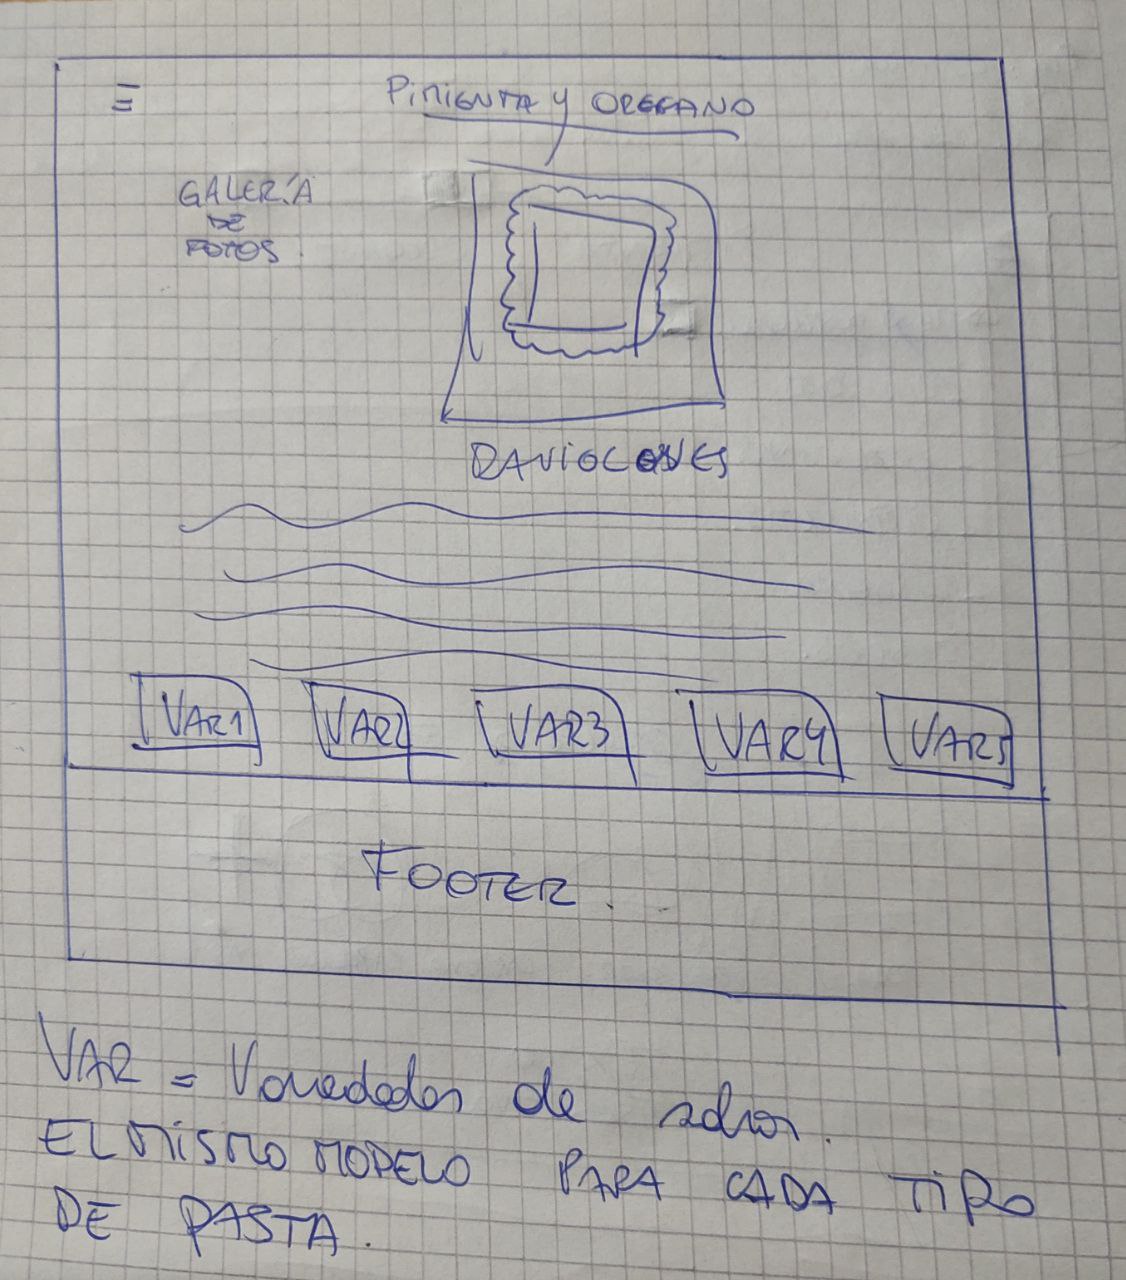 PiMIENTA Y OREGANO
GALERíA
DE
FOTOS
RAVIOLONES
VAR1 VAR2 VAR3 VAR4 VAR5
FOOTER.
VAR = Variedades de sabor.
EL MISMO MODELO PARA CADA TiPO
DE PASTA.